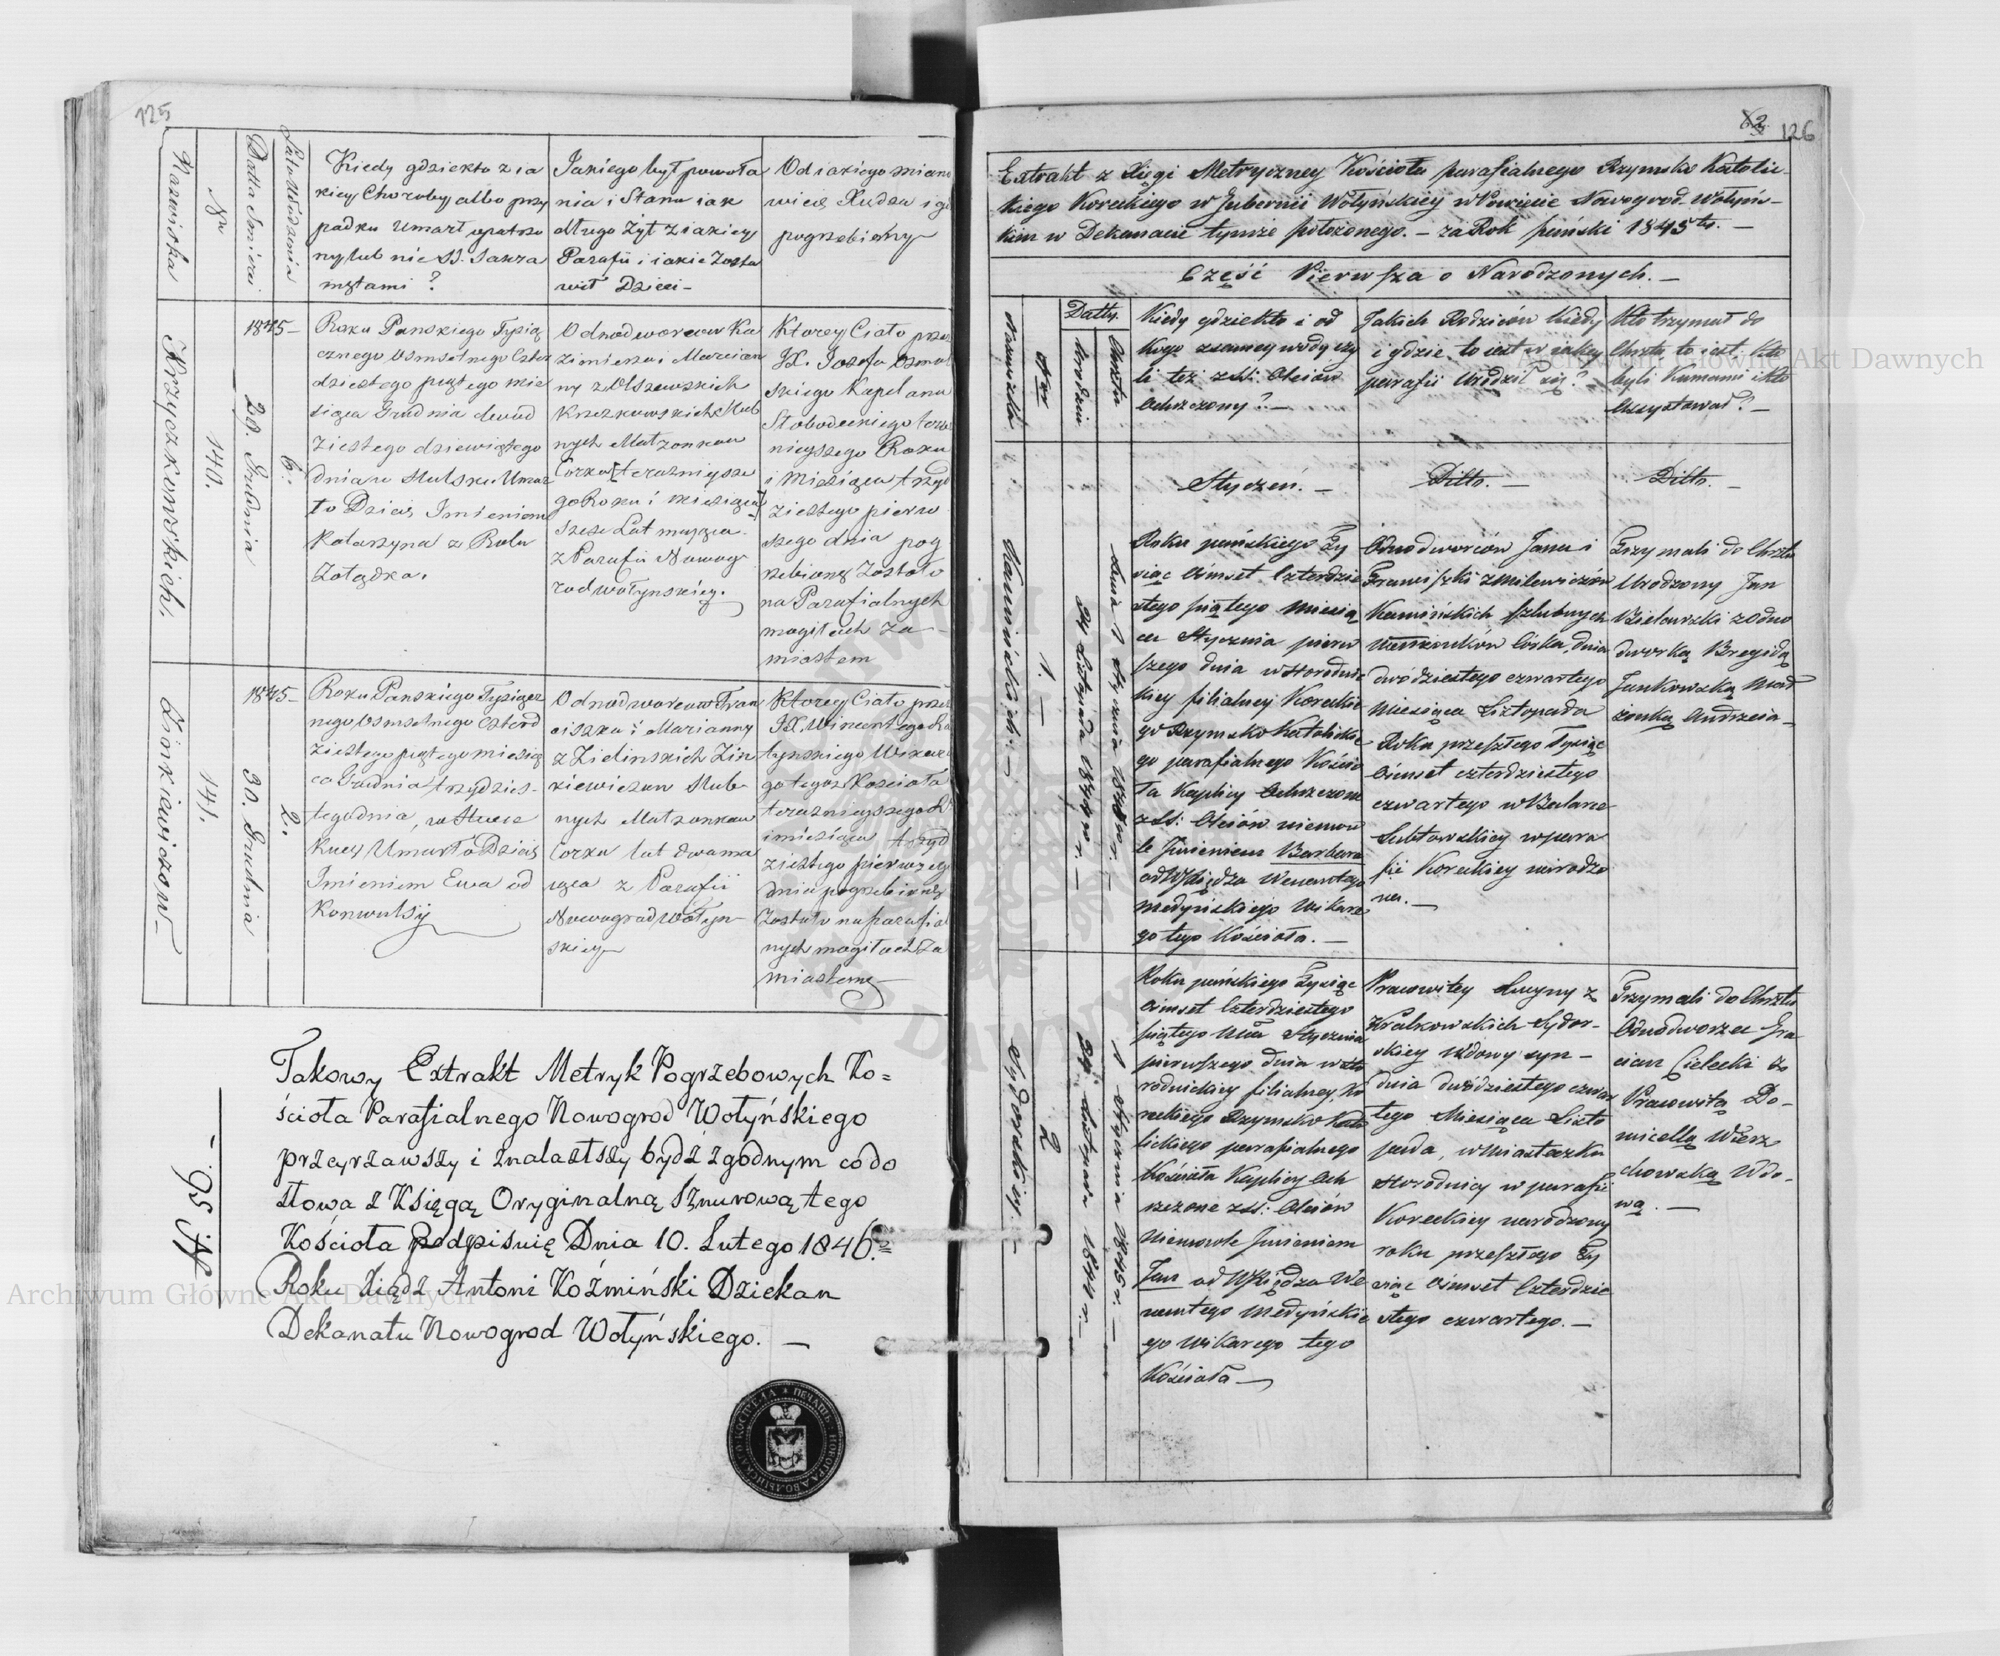 125
Nazwiska
Nr
Datta Smierci
Lata Urodzenia
Kiedy gdziekto z ia
kiey Choroby albo przy
padku umarł opatrzo
ny lub nie SS. Sakra
mętami ?
Jakiego był powoła
nia i Stanu iak
długo Żył z iakiey
Parafii i iakie Zosta
wił Dzieci -
Od iakiego miano
wicie Xiędza i gd
pogrzebiony
Krzyczkowskich.
140.
1845 -
20. Grudnia
6.
Roku Panskiego Tysią
cznego Osmsetnego Czter
dziestego piątego mie
siąca Grudnia dwud
ziestego dziewiątego
dnia w Hulsku Umar
ło Dziecię Imieniem
Katarzyna z Bolu
Żołądka.
Odnodworcow Ka
zimierza i Marcian
ny z Olszewskich
Krzczkowskich Slub
nych Małżonkow
Corka teraznieysze
go Roku i miesiąca
szesc Lat maiąca
z Parafii Nowog
rodwołynskiey.
Ktorey Ciało przez
JX. Jozefa Osmol
skiego Kapelana
Słobodeckiego teraz
nieyszego Roku
i Miesiąca trzyd
ziestego pierw
szego dnia pog
rzebione Zostało
na Parafialnych
mogiłach za
miastem
Zinkiewiczow -
141.
1845 -
30. Grudnia
2.
Roku Panskiego Tysiącz
nego Osmsetnego Czterd
ziestego piątego miesią
ca Grudnia trzydzies
tego dnia, w Hucie
umarło Dziecię
Imieniem Ewa od
Konwulsij
Odnodworcow Fran
ciszka i Marianny
z Zielinskich Zin
kiewiczow Slub
nych Małżonkow
Corka lat dwa ma
iąca z Parafii
Nowogradwołyn
skiey
Ktorey Ciało przez
JX. Wincentego
Wikare
go tegoz Kosciała
teraznieyszego R.
i miesiąca trzyd
ziestego pierwszego
dnia pogrzebione
Zostało na parafial
nych mogiłach Za
miastem
Takowy Extrakt Metryk Pogrzebowych Ko=
ścioła Parafialnego Nowogrod Wołyńskiego
przeyrzawszy i znalaztszy bydź zgodnym co do
słowa z Księgą Oryginalną Sznurową tego
Kościoła podpisuię Dnia 10. Lutego 1846.
Roku Xiądz Antoni Koźmiński Dziekan
Dekanatu Nowogrod Wołyńskiego. —
62. 126
Extrakt z Xięgi Metryczney Kościoła parafialnego Rzymsko Katolic-
kiego Koreckiego w Gubernii Wołyńskiey w Powiecie Nowogrod Wołyń-
skim w Dekanacie tymże położonego. - za Rok pański 1845 ty. -
Część Pierwsza o Narodzonych. -
Nazwiska
Nra
Datty.
Urodzin
Chrztu
Kiedy gdziekto i od
Kogo z samey wody czy
li też z SS: Oleiów
Ochrzczony ? -
Jakich Rodziców Kiedy
i gdzie, to iest w iakiey
parafii Urodził się ? -
Kto trzymał do
Chrztu, to iest Kto
byli Kumami i kto
Assystował ? -
Styczeń. -
Ditto. -
Ditto. -
Kamińskich. -
1. -
24 Listopada 1844 r. -
dnia 1 Stycznia 1845 r. -
Roku pańskiego Ty
siąc ośmset Czterdzie
stego piątego Miesią
ca Stycznia pierw
szego dnia w Horodnic
kiey filialney Koreckie
go Rzymsko Katolickie
go parafialnego Kościo
ła Kaplicy Ochrzczone
z SS: Oleiów niemow
le Imieniem Barbara
od WXiędza Wenantego
Medyńskiego Wikare
go tego Kościoła. -
Odnodworców Jana i
Franciszki z Milewiczów
Kamińskich szlubnych
Małżonków Córka, dnia
dwódziestego czwartego
Miesiąca Listopada
Roku przeszłego tysiąc
ośmset czterdziestego
czwartego w
wpara
fii Koreckiey narodzo
na. -
Trzymali do Chrztu
Urodzony Jan
Bielawski z odno
dworką Brygidą
Jankowską Mał
żonką Andrzeia -
Sydorskiey. -
2
24 Listopada 1844 r. -
1 Stycznia 1845 r. -
Roku pańskiego Tysiąc
ośmset Czterdziestego
piątego Mca Stycznia
pierwszego dnia w Ho
rodnickiey filialney Ko
reckiego Rzymsko Kato
lickiego parafialnego
Kościoła Kaplicy Och
rzczone z SS: Oleiów
Niemowle Imieniem
Jan od WXiędza We
nantego Medyńskie
go Wikarego tego
Kościoła -
Pracowitey Lucyny z
Kralkowskich Sydor-
skiey Wdowy syn -
dnia dwódziestego czwar
tego Miesiąca Listo
pada, w Miasteczku
Horodnicy w parafii
Koreckiey narodzony
roku przeszłego Ty
siąc ośmset Czterdzie
stego czwartego. -
Trzymali do Chrztu
Odnodworzec Gra
cian Cielecki z
Pracowitą Do-
micellą Wierz
chowską Wdo-
wą. -
Archiwum Główne Akt Dawnych
Archiwum Główne Akt Dawnych